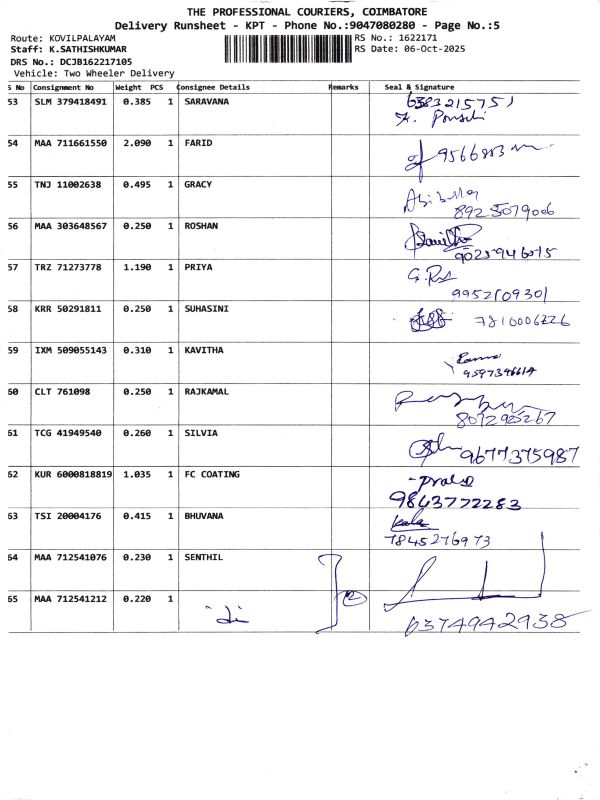 THE PROFESSIONAL COURIERS, COIMBATORE
Delivery Runsheet - KPT - Phone No.:9047080280 - Page No.:5
Route: KOVILPALAYAM RS No.: 1622171
Staff: K.SATHISHKUMAR RS Date: 06-Oct-2025
DRS No.: DCJB162217105
Vehicle: Two Wheeler Delivery
S No Consignment No Weight PCS Consignee Details Remarks Seal & Signature
53 SLM 379418491 0.385 1 SARAVANA 6383215751
54 MAA 711661550 2.090 1 FARID
55 TNJ 11002638 0.495 1 GRACY
8925079006
56 MAA 303648567 0.250 1 ROSHAN
57 TRZ 71273778 1.190 1 PRIYA
9952109301
58 KRR 50291811 0.250 1 SUHASINI 7810006226
59 IXM 509055143 0.310 1 KAVITHA
9597346614
60 CLT 761098 0.250 1 RAJKAMAL
8072925267
61 TCG 41949540 0.260 1 SILVIA 9677375987
62 KUR 6000818819 1.035 1 FC COATING
9843772283
63 TSI 20004176 0.415 1 BHUVANA
7845276973
64 MAA 712541076 0.230 1 SENTHIL
65 MAA 712541212 0.220 1 2
6374942938